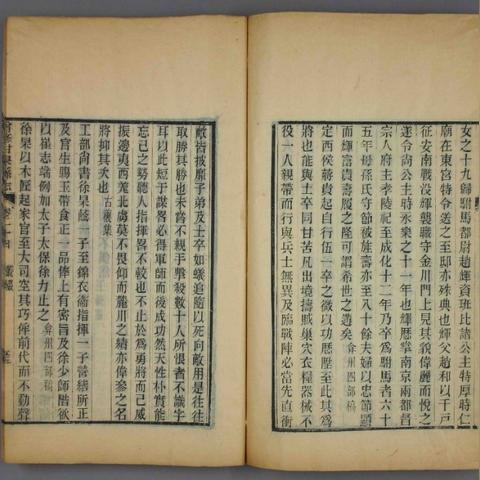 女之十九歸駙馬都尉趙輝資班比諸公主特厚時仁
廟在東宮特令送之至邸亦殊典也輝父趙和以千戶
征安南戰沒輝襲職守金川門上見其貌偉麗而悅之
遂令尚公主時永樂之十一年也輝歷掌南京兩都督
宗人府主孝陵祀至成化十二年乃卒為駙馬者六十
五年母孫氏守節被旌壽亦至八十餘夫婦以忠節顯
而輝富貴壽履之隆可謂希世之遇矣 弇州四部稿
定西侯蔣貴起自行伍一卒之微以功歷歷至此其為
將也能與士卒同甘苦凡出境擣賊巢穴衣糧器械不
役一人親帶而行與兵士無異及臨戰陣必當先直衝
敵皆披靡子弟及士卒如蟻追隨以死向敵用是往往
取勝其勝也未嘗不親手擊殺數十人所恨者不識字
耳以此短于謀畧必得軍師而後成功然天性朴實能
忘己之勢聽人指揮畧不較也不止於為勇將而已威
振邊夷西羌北虜莫不畏仰而麓川之績亦偉參之名
將抑其次也 古穰集
工部尚書徐杲蔭一子至錦衣衛指揮一子營繕所正
及官生賜玉帶食正一品俸上有密旨及徐少師階欲
以崔志端例加太子太保徐力止之 弇州四部稿
徐杲以木匠起家官至大司空其巧侔前代而不動聲